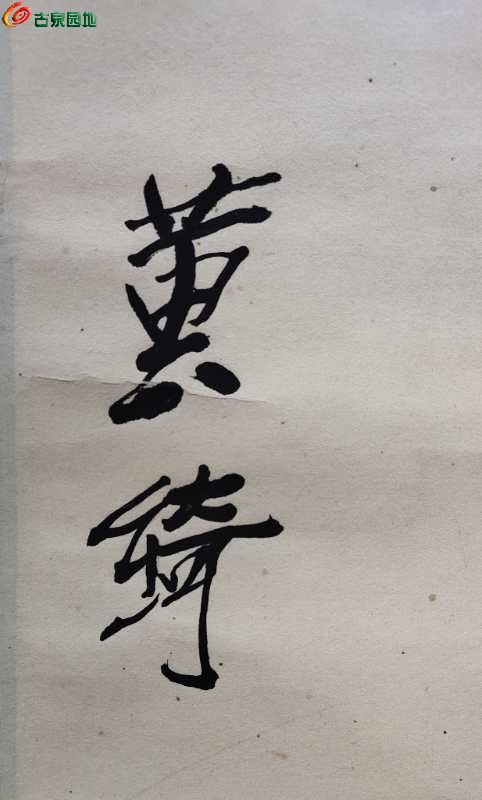 古泉园地
黄绮